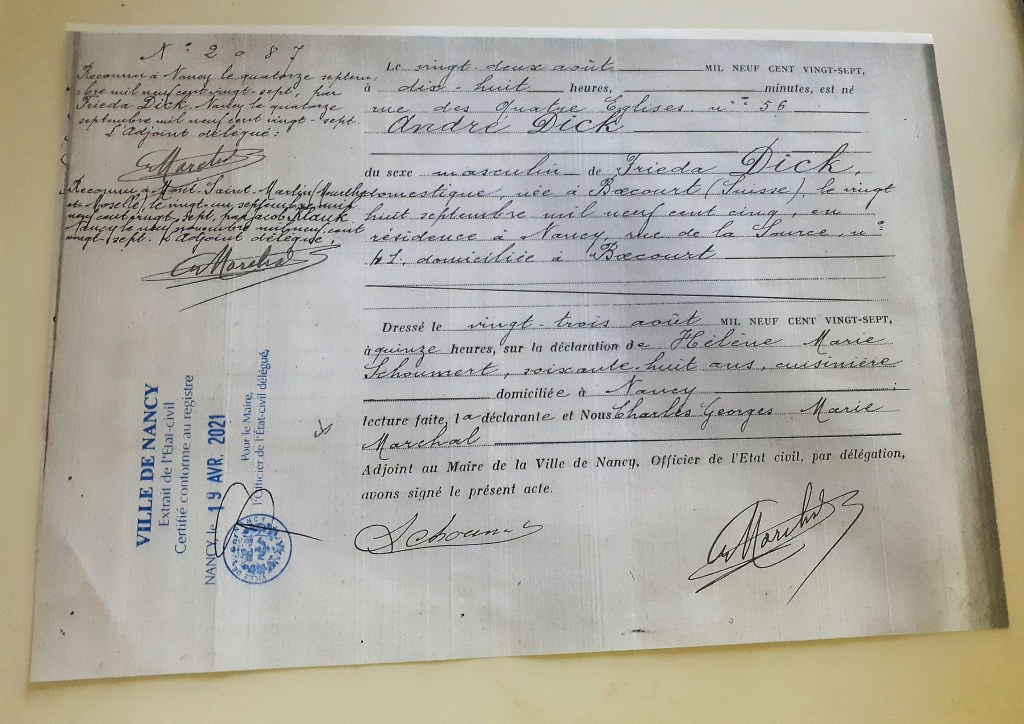 N° 2087
Reconnu à Nancy le quatorze septem-
bre mil neuf cent vingt-sept, par
Frieda Dick. Nancy le quatorze
septembre mil neuf cent vingt-sept
L'Adjoint délégué:
Reconnu à Mont-Saint-Martin (Meurthe
et-Moselle), le vingt-un septembre mil
neuf cent vingt-sept, par Jacob Klauk
Nancy le neuf novembre mil neuf cent
vingt-sept. L'Adjoint délégué,
Le vingt-deux août MIL NEUF CENT VINGT-SEPT,
à dix-huit heures, minutes, est né
rue des Quatre Eglises n° 56
André Dick
du sexe masculin de Frieda Dick,
domestique, née à Bœcourt (Suisse), le vingt
huit septembre mil neuf cent cinq, en
résidence à Nancy, rue de la Source, n°
41, domiciliée à Bœcourt
Dressé le vingt-trois août MIL NEUF CENT VINGT-SEPT,
à quinze heures, sur la déclaration de Hélène Marie
Schoumert, soixante-huit ans, cuisinière
domiciliée à Nancy ;
lecture faite, la déclarante et Nous Charles Georges Marie
Marchal
Adjoint au Maire de la Ville de Nancy, Officier de l'Etat civil, par délégation,
avons signé le présent acte.
VILLE DE NANCY
Extrait de l'Etat-civil
Certifié conforme au registre
NANCY, le 19 AVR. 2021
Pour le Maire,
l'Officier de l'État-civil délégué,